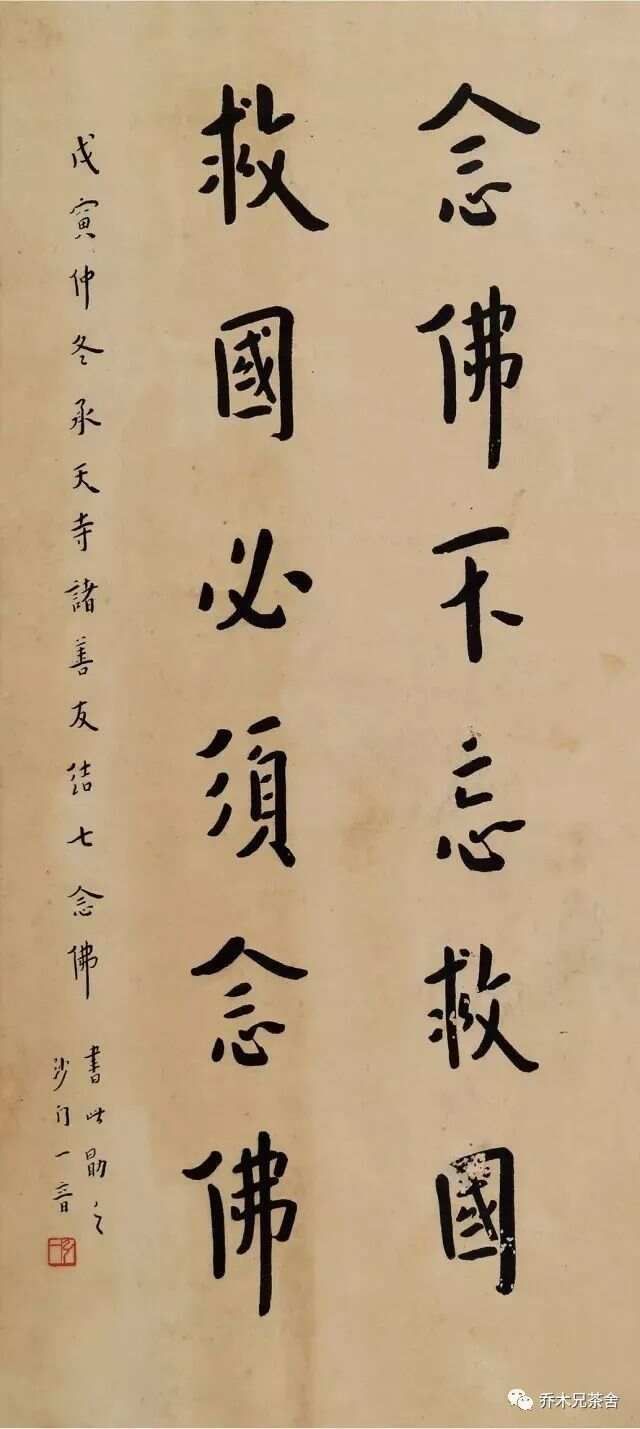 念佛不忘救國
救國必須念佛
戊寅仲冬承天寺諸善友結七念佛
書此勗之
沙门一音
乔木兄茶舍